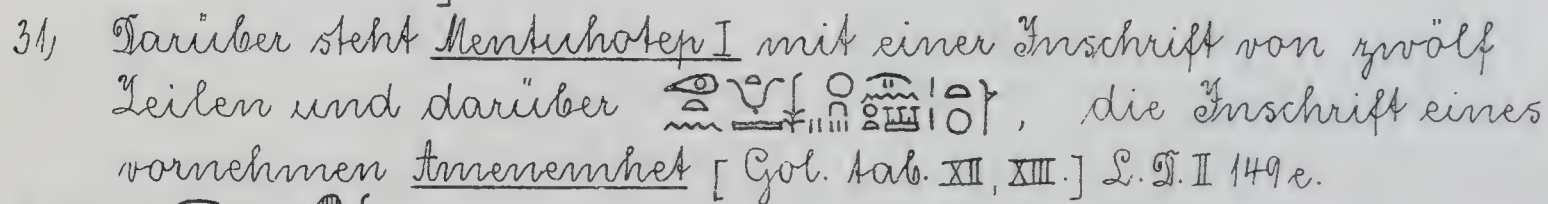 31, Darüber steht Mentuhotep I mit einer Inschrift von zwölf
Zeilen und darüber , die Inschrift eines
vornehmen Amenemhet [Gol. tab. XII, XIII.] L. D. II 149 e.